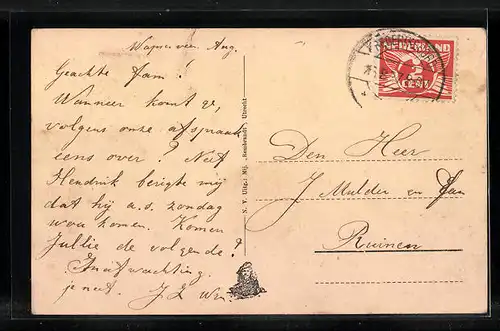 Wapserveen, Aug.
Geachte fam!
Wanneer komt U,
volgens onze afspraak
eens over? Neef
Hendrik berigte mij
dat hij a.s. zondag
wou komen. Komen
Jullie de volgende?
Inafwachting
je neef. J
N. V. Uitg.: Mij. „Rembrandt” Utrecht
NEDERLAND
2
CENT
Den Heer
J Mulder en fam
Ruinen